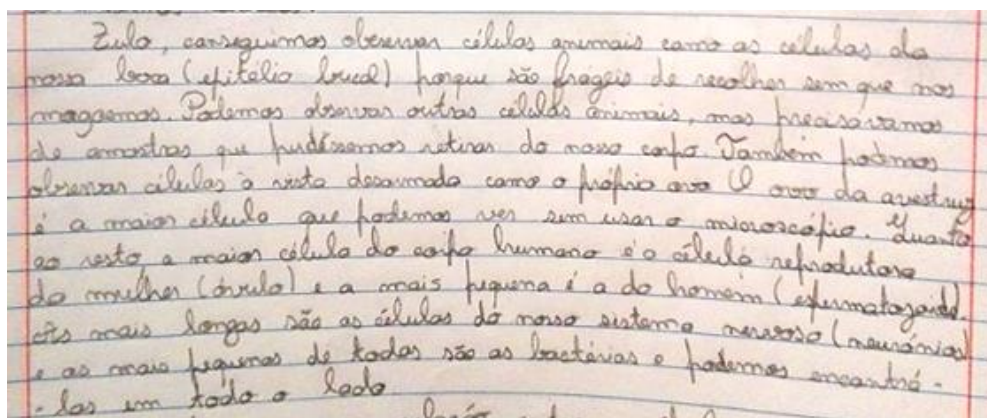 Zulo, conseguimos observar células animais como as células da
nossa boca (epitélio bucal) porque são frágeis de recolher sem que nos
magoemos. Podemos observar outras células animais, mas precisavamos
de amostras que pudéssemos retirar do nosso corpo. Também podmos
observar células à vista desarmada como o próprio ovo. O ovo da avestruz
é a maior célula que podemos ver sem usar o microscópio. Quanto
ao resto a maior célula do corpo humano é a célula reprodutora
da mulher (óvulo) e a mais pequena é a do homem (espermatozoide).
As mais longas são as células do nosso sistema nervoso (neurónios)
e as mais pequenas de todas são as bactérias e podemos encontrá-
-las em todo o lado.